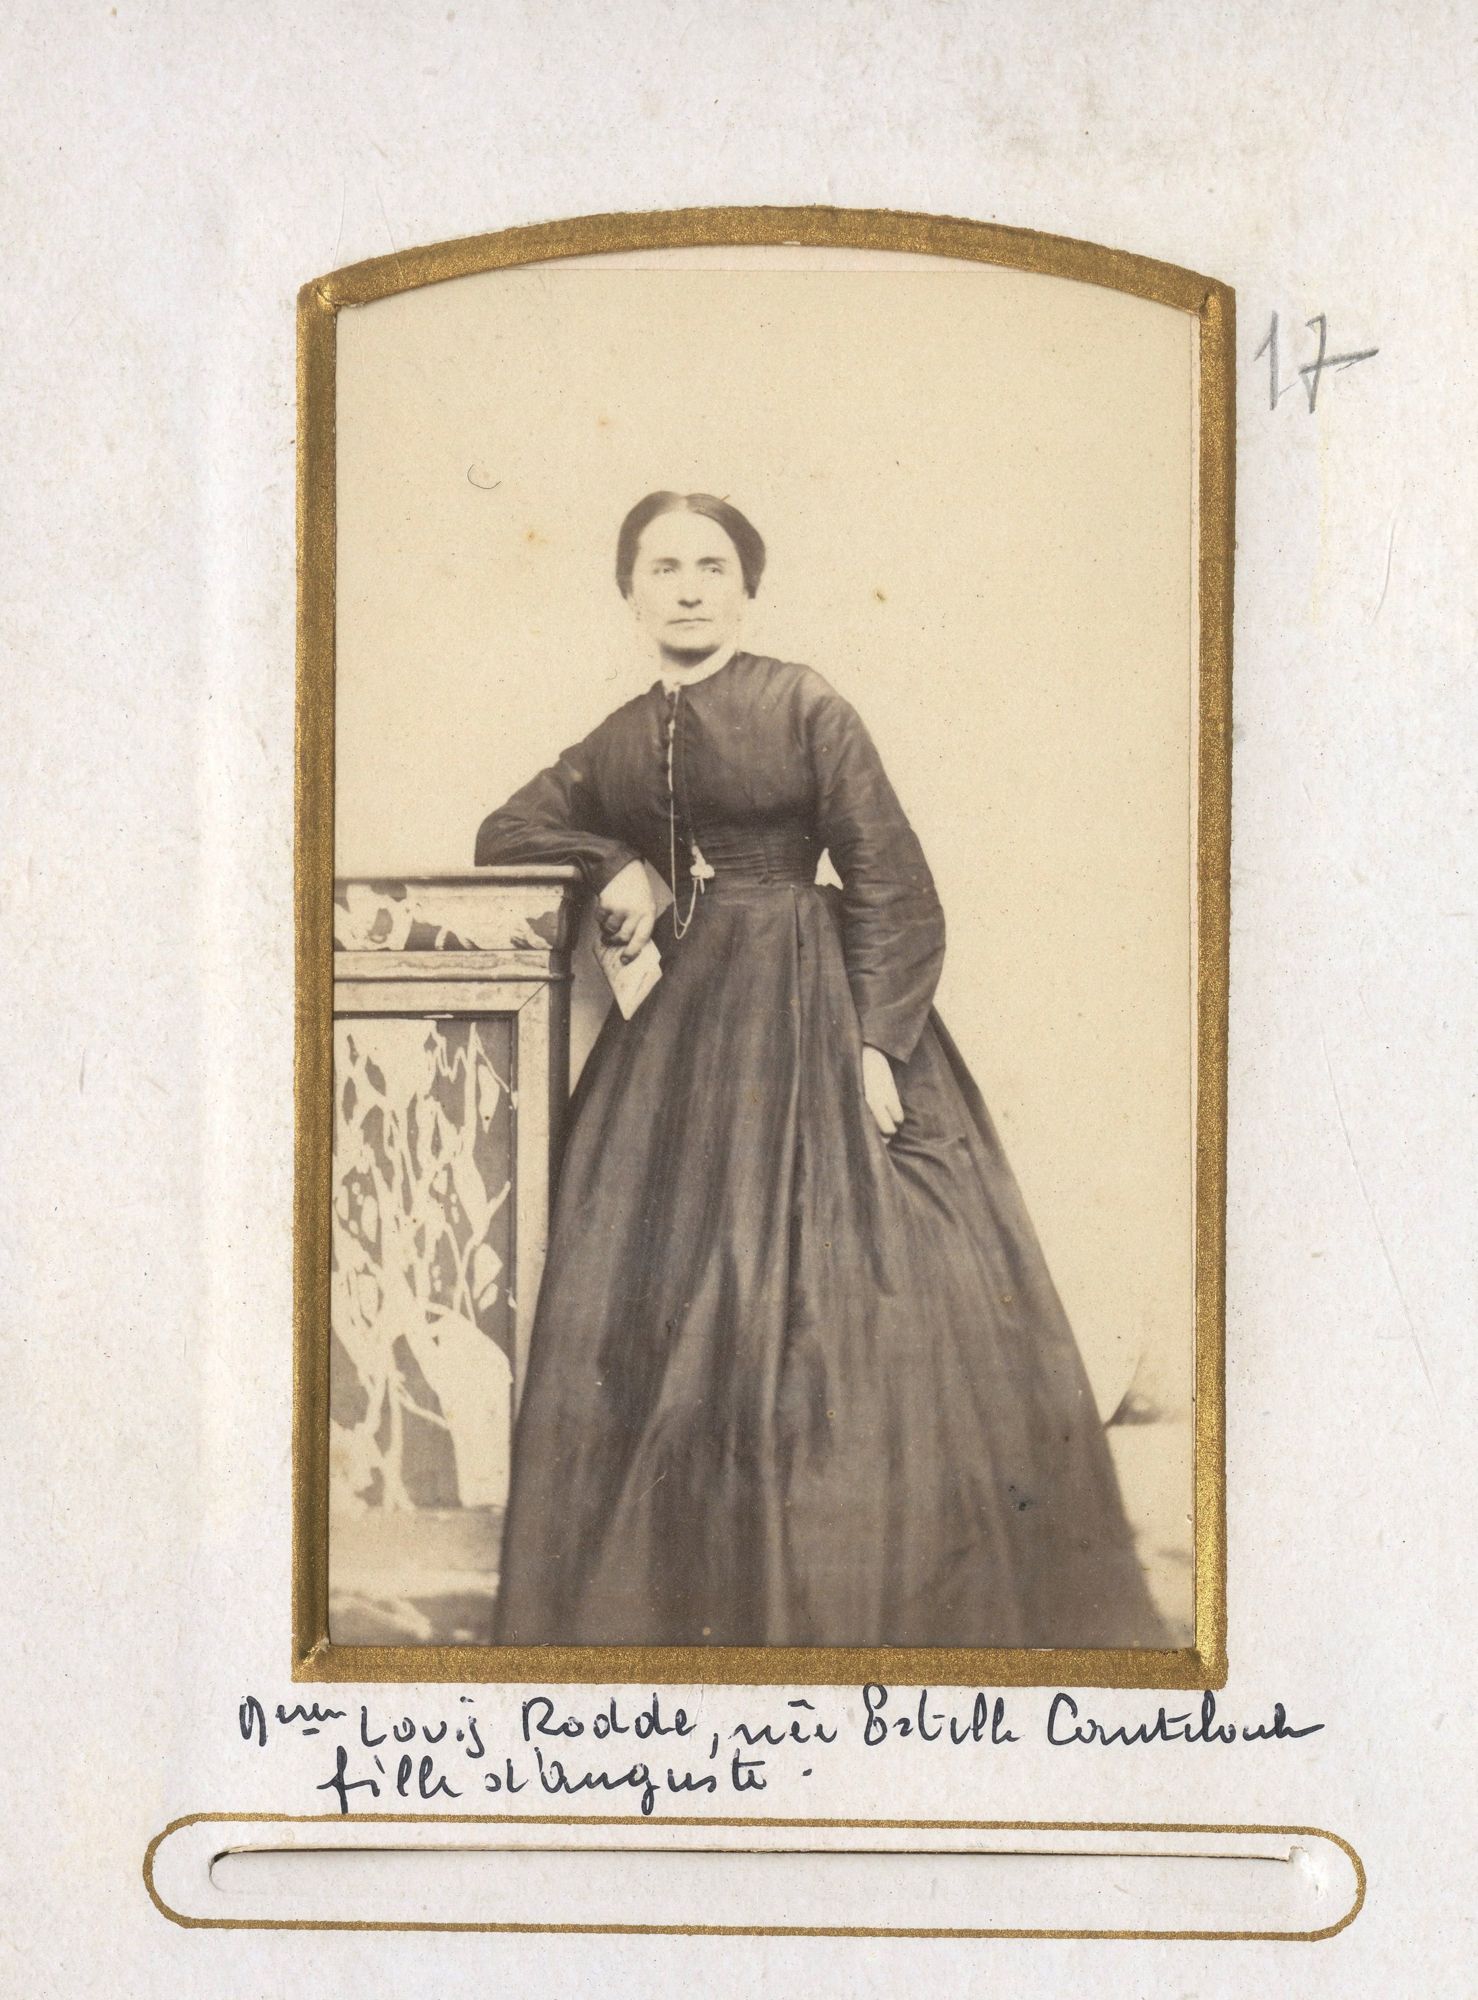 17
Mme Louis Rodde, née Estelle Canteloube
fille d'Auguste.